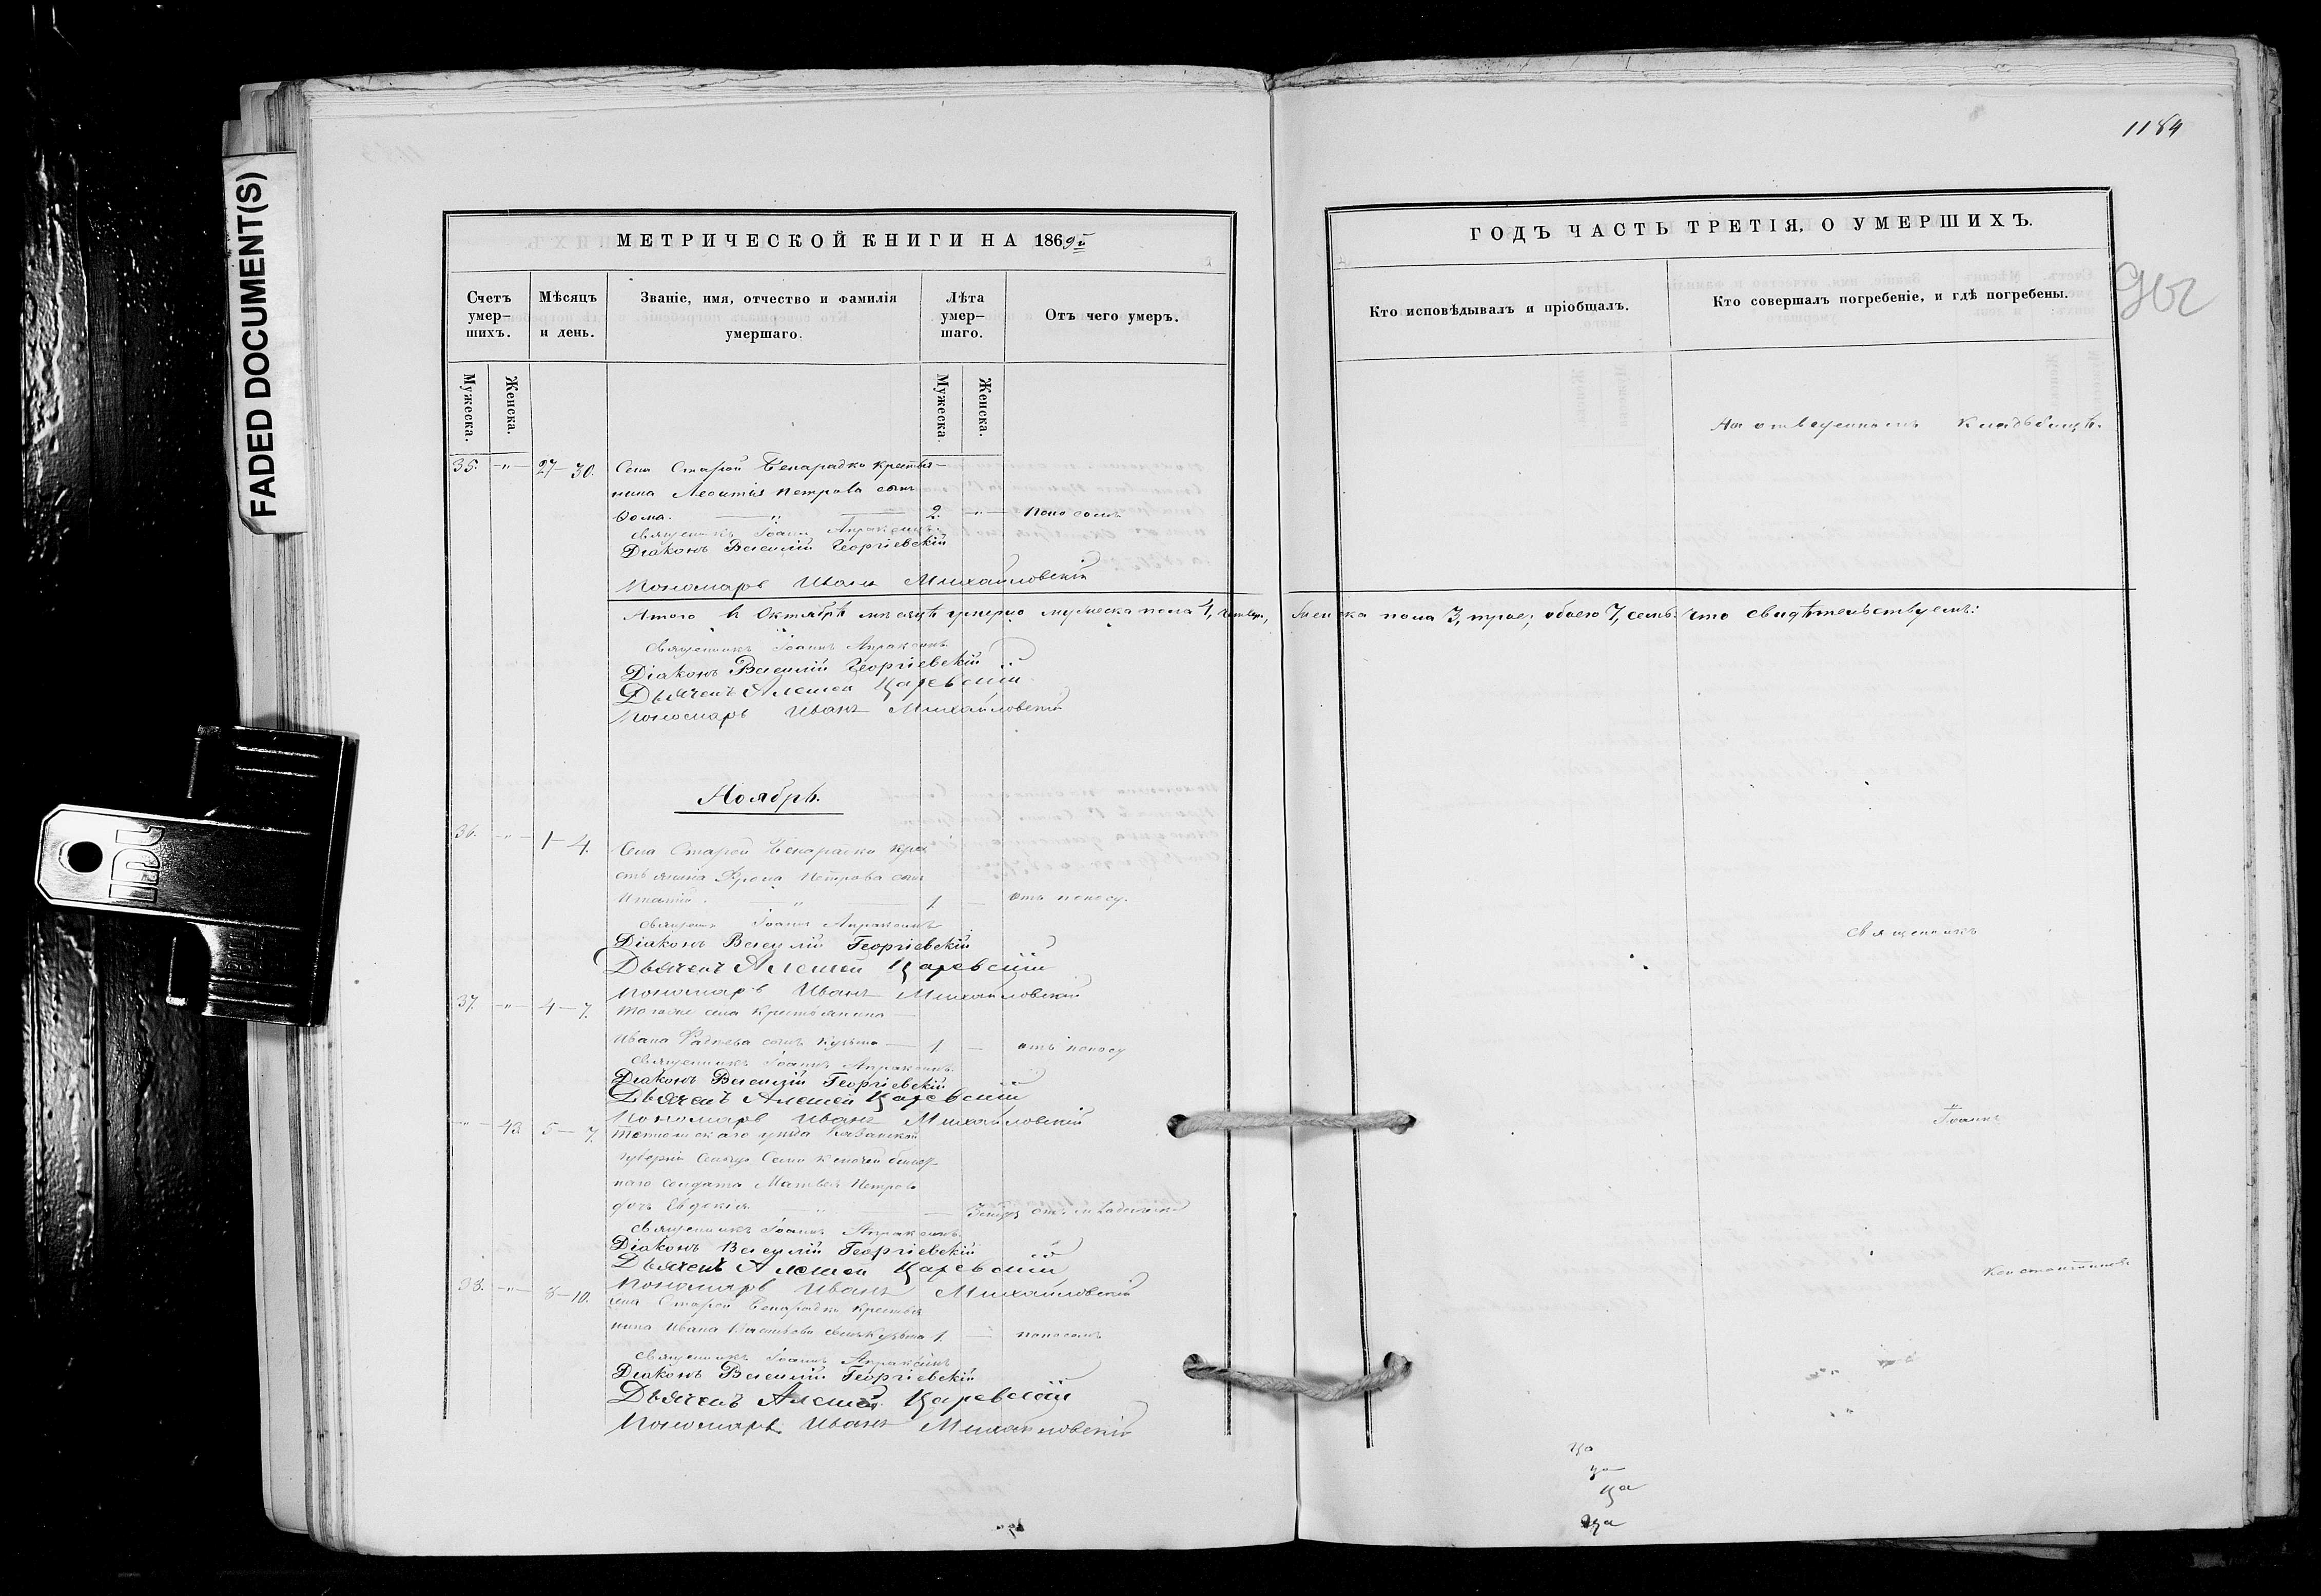 1184
FADED DOCUMENT(S)
МЕТРИЧЕСКОЙ КНИГИ НА 1869й
Счетъ умер-шихъ.
Мѣсяцъ и день.
Званіе, имя, отчество и фамилія умершаго.
Лѣта умер-шаго.
Отъ чего умеръ.
Мужеска.
Женска.
Мужеска.
Женска.
35. -"- 27-30. Села Старой крестья-
нина Леонтія Петрова сынъ
Фома. " 2. -"- Поносомъ
Священникъ Іоаннъ
Діаконъ Василій Георгіевскій
Пономарь Иванъ Михайловскій
Итого въ Октябрѣ мѣсяцѣ умерло мужеска пола 4, четверо, женска пола 3, трое; обоего 7, семь. Что свидѣтельствуемъ:
Священникъ Іоаннъ
Діаконъ Василій Георгіевскій
Дьячекъ Алексей Царевскій
Пономарь Иванъ Михайловскій
Ноябрь.
36. -"- 1-4. Села Старой кре
стьянина Петрова сынъ
" 1. - отъ поносу.
Священ Іоаннъ
Діаконъ Василій Георгіевскій
Дьячекъ Алексей Царевскій
Пономарь Иванъ Михайловскій
37. -"- 4-7. Тогоже села Крестьянина
Ивана сынъ Кузьма 1. - отъ поносу
Священникъ Іоаннъ
Діаконъ Василій Георгіевскій
Дьячекъ Алексей Царевскій
Пономарь Иванъ Михайловскій
-"- 13. 5-7. уѣзда Казанской
губерніи
наго солдата Матвея Петрова
дочь Евдокія отъ
Священникъ Іоаннъ
Діаконъ Василій Георгіевскій
Дьячекъ Алексей Царевскій
Пономарь Иванъ Михайловскій
38. -"- 8-10. Села Старой крестья
нина Ивана сынъ Кузьма 1. поносомъ
Священникъ Іоаннъ
Діаконъ Василій Георгіевскій
Дьячекъ Алексей Царевскій
Пономарь Иванъ Михайловскій
ГОДЪ ЧАСТЬ ТРЕТІЯ, О УМЕРШИХЪ.
Кто исповѣдывалъ и пріобщалъ.
Кто совершалъ погребеніе, и гдѣ погребены.
На отведенномъ Кладбищѣ.
Священникъ
Іоаннъ
Константиновъ
ца
ца
ца
ца